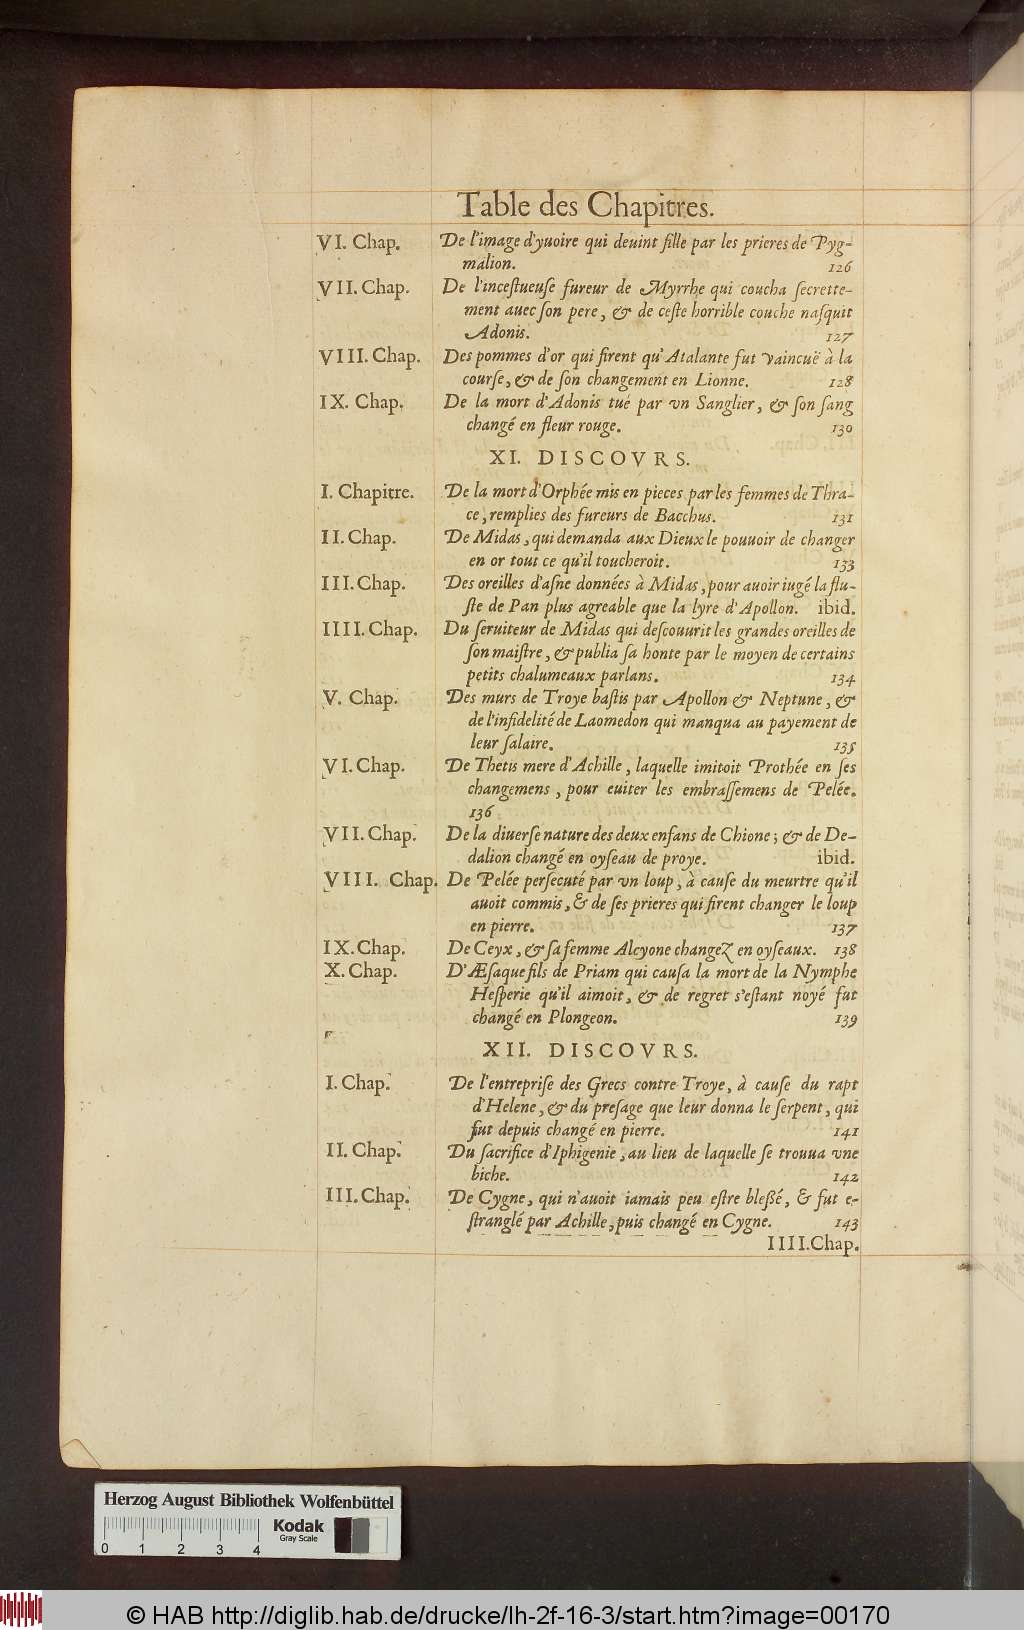 Table des Chapitres.
VI. Chap. De l'image d'yuoire qui deuint fille par les prieres de Pyg-
malion. 126
VII. Chap. De l'incestueuse fureur de Myrrhe qui coucha secrette-
ment auec son pere, & de ceste horrible couche nasquit
Adonis. 127
VIII. Chap. Des pommes d'or qui firent qu'Atalante fut vaincuë à la
course, & de son changement en Lionne. 128
IX. Chap. De la mort d'Adonis tué par vn Sanglier, & son sang
changé en fleur rouge. 130
XI. DISCOVRS.
I. Chapitre. De la mort d'Orphée mis en pieces par les femmes de Thra-
ce, remplies des fureurs de Bacchus. 131
II. Chap. De Midas, qui demanda aux Dieux le pouuoir de changer
en or tout ce qu'il toucheroit. 133
III. Chap. Des oreilles d'asne données à Midas, pour auoir iugé la flu-
ste de Pan plus agreable que la lyre d'Apollon. ibid.
IIII. Chap. Du seruiteur de Midas qui descouurit les grandes oreilles de
son maistre, & publia sa honte par le moyen de certains
petits chalumeaux parlans. 134
V. Chap. Des murs de Troye bastis par Apollon & Neptune, &
de l'infidelité de Laomedon qui manqua au payement de
leur salaire. 135
VI. Chap. De Thetis mere d'Achille, laquelle imitoit Prothée en ses
changemens, pour euiter les embrassemens de Pelée.
136
VII. Chap. De la diuerse nature des deux enfans de Chione; & de De-
dalion changé en oyseau de proye. ibid.
VIII. Chap. De Pelée persecuté par vn loup, à cause du meurtre qu'il
auoit commis, & de ses prieres qui firent changer le loup
en pierre. 137
IX. Chap. De Ceyx, & sa femme Alcyone changez en oyseaux. 138
X. Chap. D'Æsaque fils de Priam qui causa la mort de la Nymphe
Hesperie qu'il aimoit, & de regret s'estant noyé fut
changé en Plongeon. 139
XII. DISCOVRS.
I. Chap. De l'entreprise des Grecs contre Troye, à cause du rapt
d'Helene, & du presage que leur donna le serpent, qui
fut depuis changé en pierre. 141
II. Chap. Du sacrifice d'Iphigenie, au lieu de laquelle se trouua vne
biche. 142
III. Chap. De Cygne, qui n'auoit iamais peu estre blessé, & fut e-
stranglé par Achille, puis changé en Cygne. 143
IIII. Chap.
Herzog August Bibliothek Wolfenbüttel
Kodak
Gray Scale
0 1 2 3 4
© HAB http://diglib.hab.de/drucke/lh-2f-16-3/start.htm?image=00170